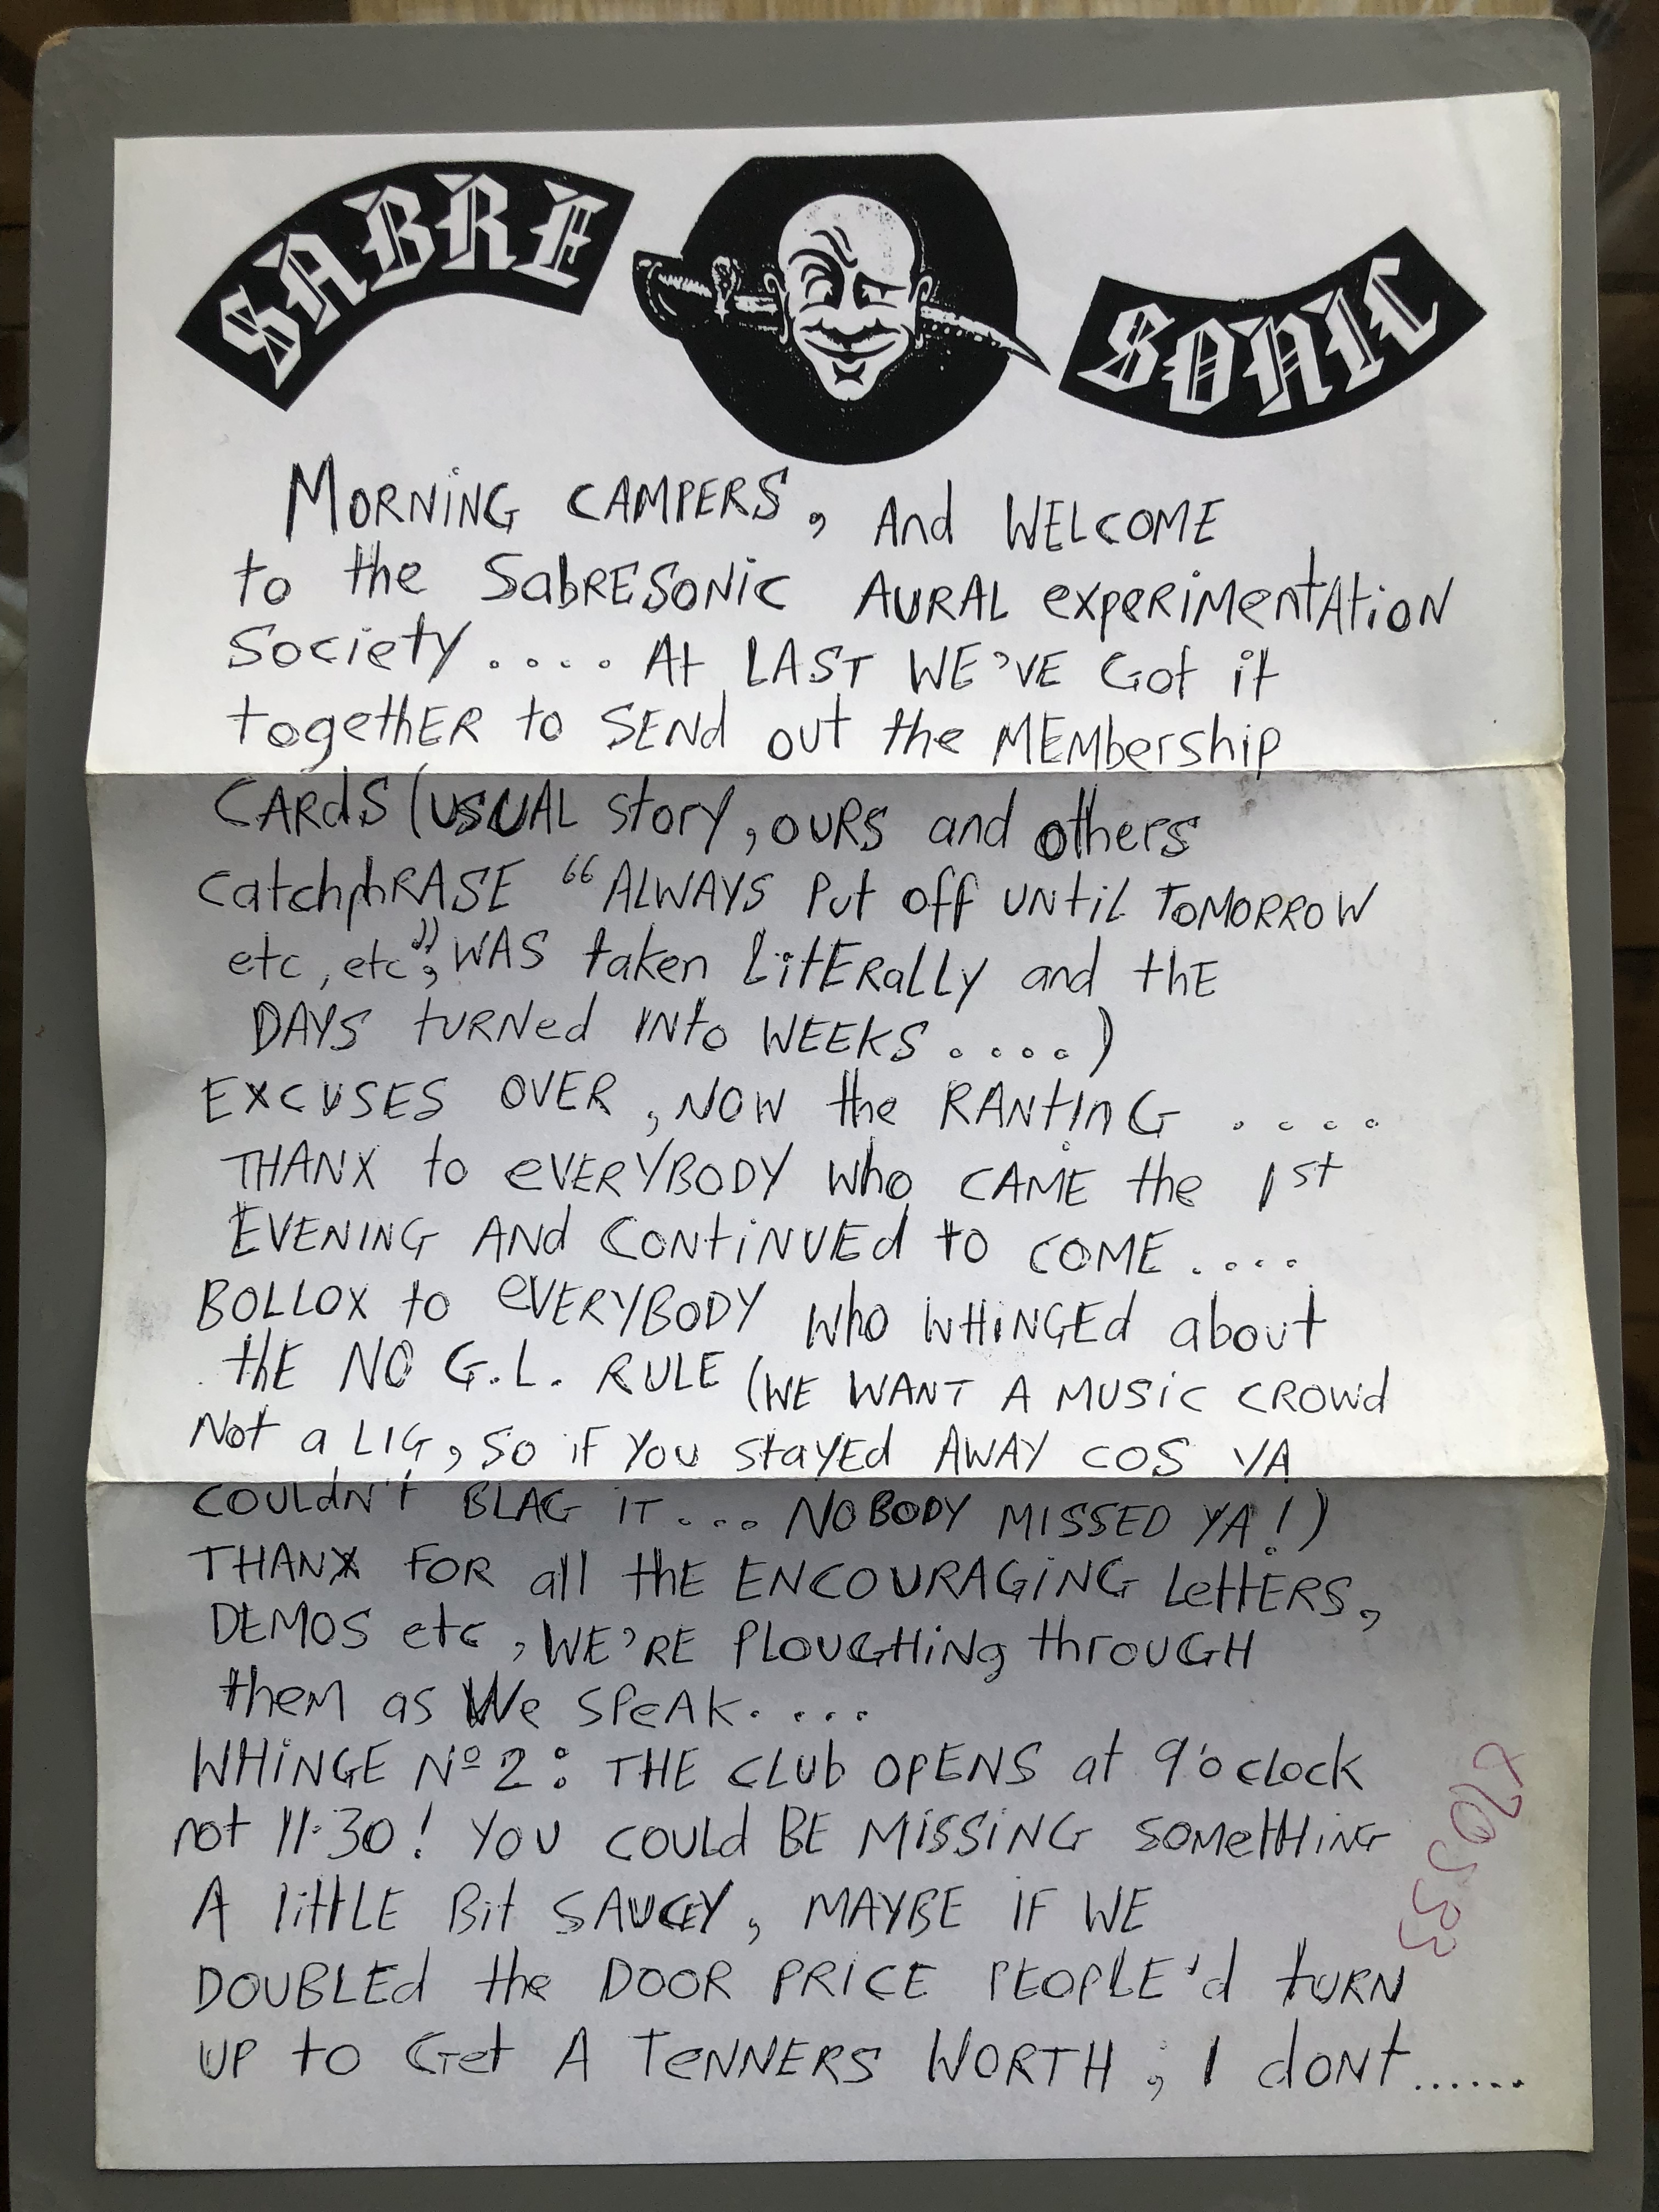 SABRE SONIC
MORNING CAMPERS, And WELCOME
to the SabRESONIC AURAL experimentAtion
Society .... At LAST WE'VE Got it
togethER to SENd out the MEMbership
CARdS (USUAL story, OURS and others
catchphRASE "ALWAYS Put off UNtil TOMORROW
etc, etc", WAS taken LitERally and thE
DAYS tURNed INto WEEKS ....)
EXCUSES OVER, NOW the RANtInG ....
THANX to eVERYBODY who CAME the 1st
EVENING ANd ContiNUEd to COME ....
BOLLOX to eVERYBODY who WHiNGEd about
thE NO G.L. RULE (WE WANT A MUSIC CROWd
Not a LIG, SO iF YOU StaYEd AWAY COS YA
COULdN't BLAG IT.... NOBODY MISSED YA!)
THANX FOR all thE ENCOURAGiNG LettERS,
DEMOS etc, WE'RE PLOUGHiNg throUGH
theM as We SPeAK. ...
WHiNGE Nº 2: THE CLUb OPENS at 9'oclock
not 11.30! YOU COULd BE MiSSING SOMetHiNG
A littLE Bit SAUCEY, MAYBE IF WE
DOUBLEd the DOOR PRICE PEOPLE'd tURN
UP to Get A TeNNERS WORTH, I dONt ......